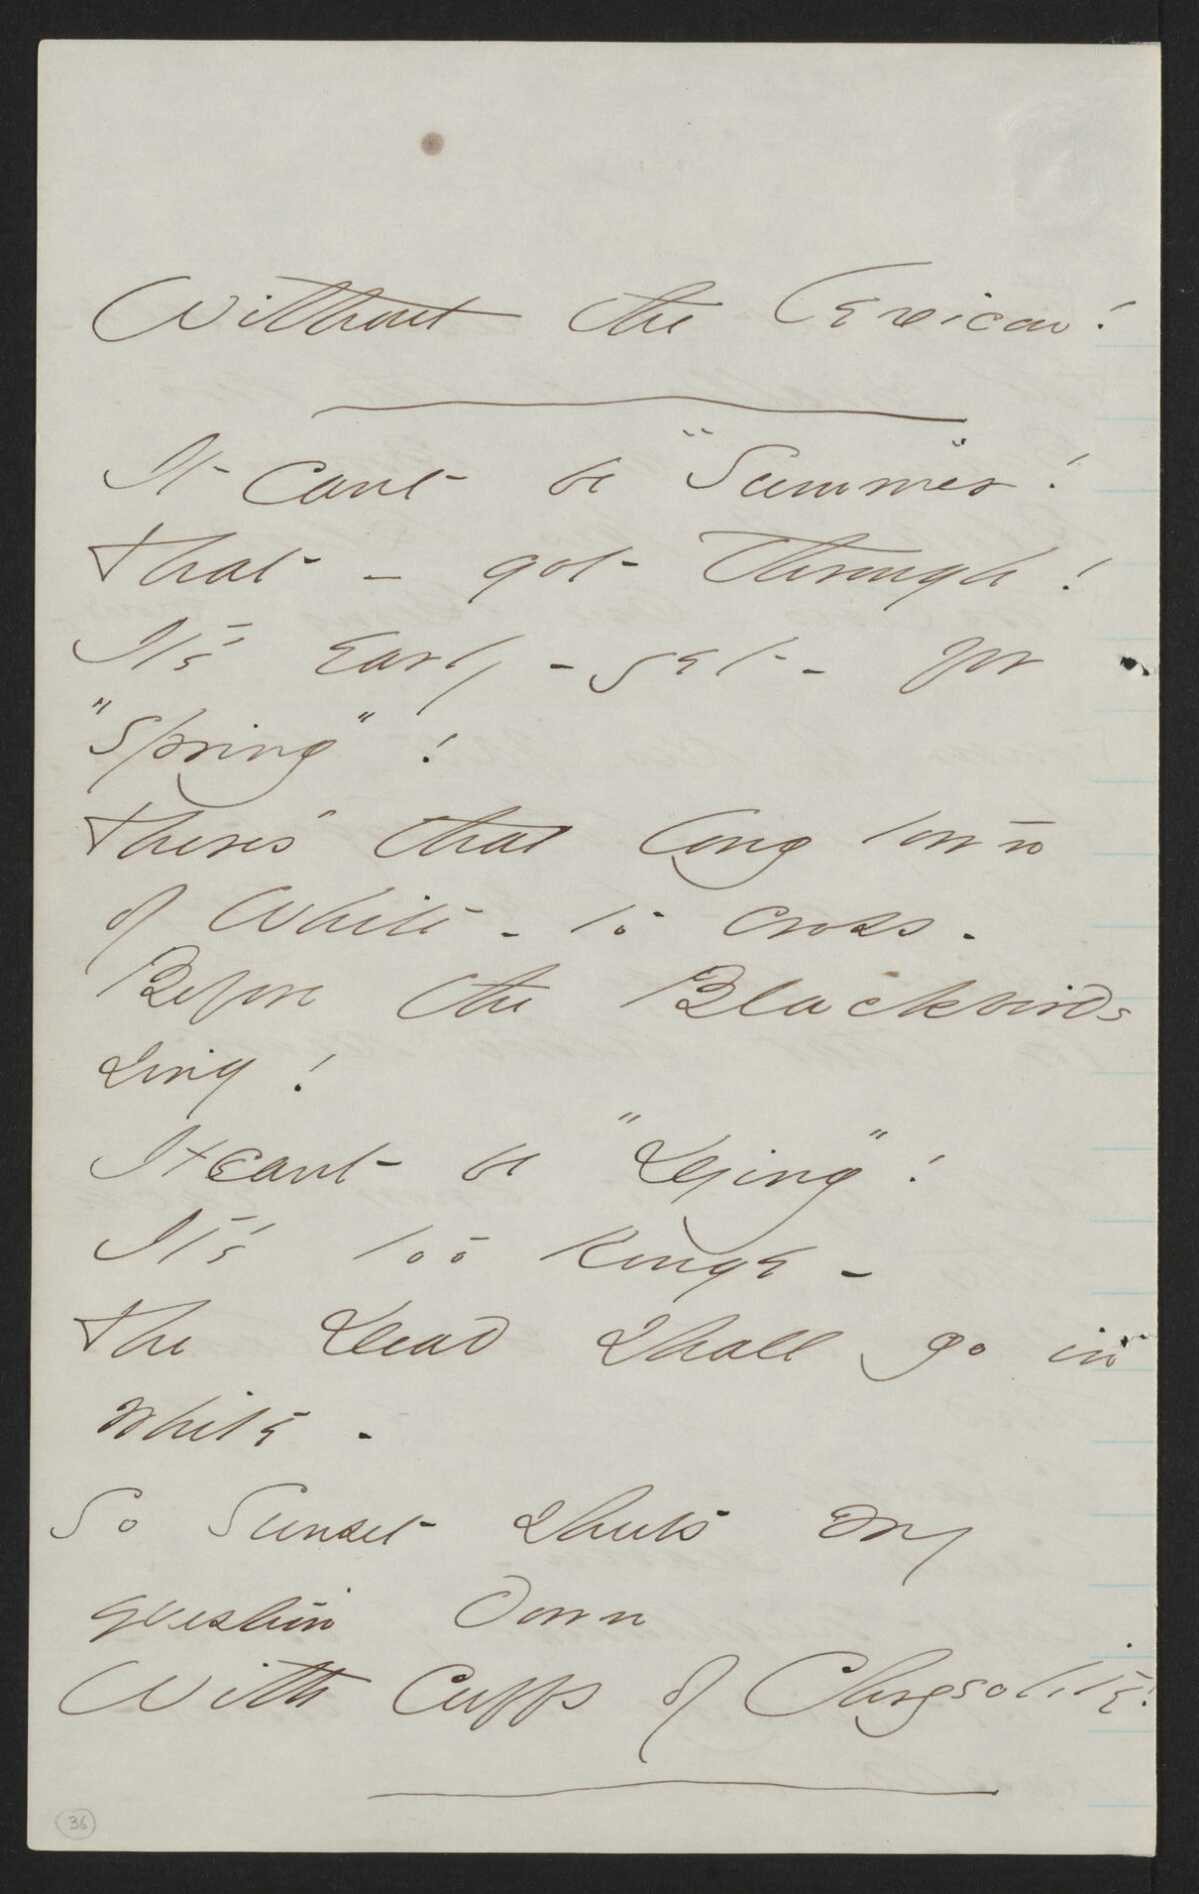 Without the Lexicon!
It cant be "Summer"!
That - got through!
It's early - yet - for
"Spring"!
There's that long town
of White - to cross -
Before the Blackbirds
sing!
It cant be "Dying"!
It's too Rouge -
The Dead shall go in
White -
So Sunset shuts my
question down
With Cuffs of Chrysolite!
36